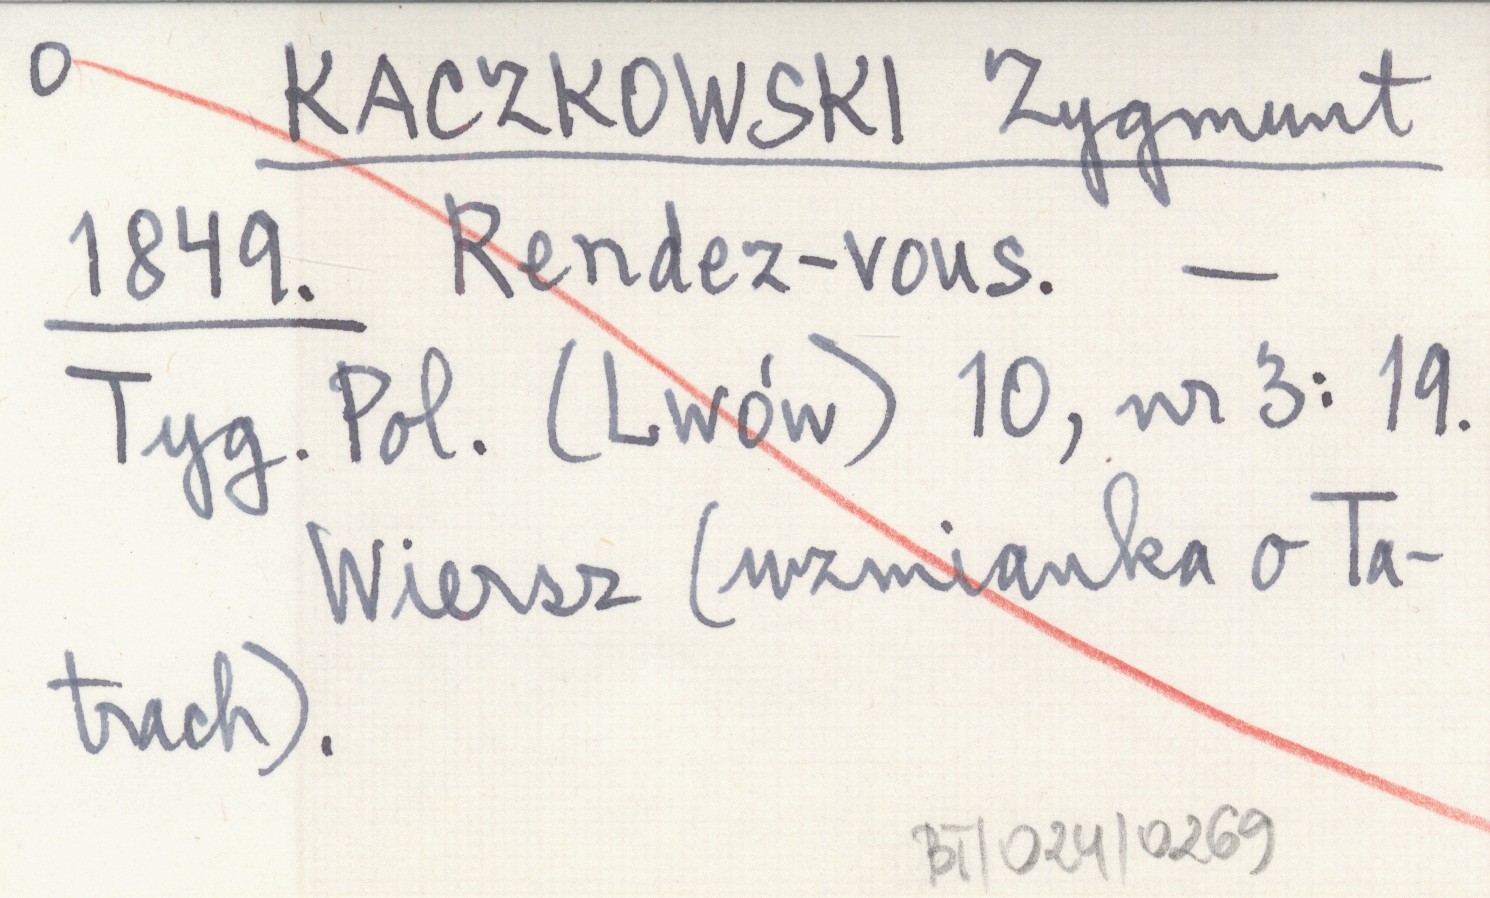 o KACZKOWSKI Zygmunt
1849. Rendez-vous. —
Tyg. Pol. (Lwów) 10, nr 3: 19.
Wiersz (wzmianka o Ta-
trach).
BT/024/0269